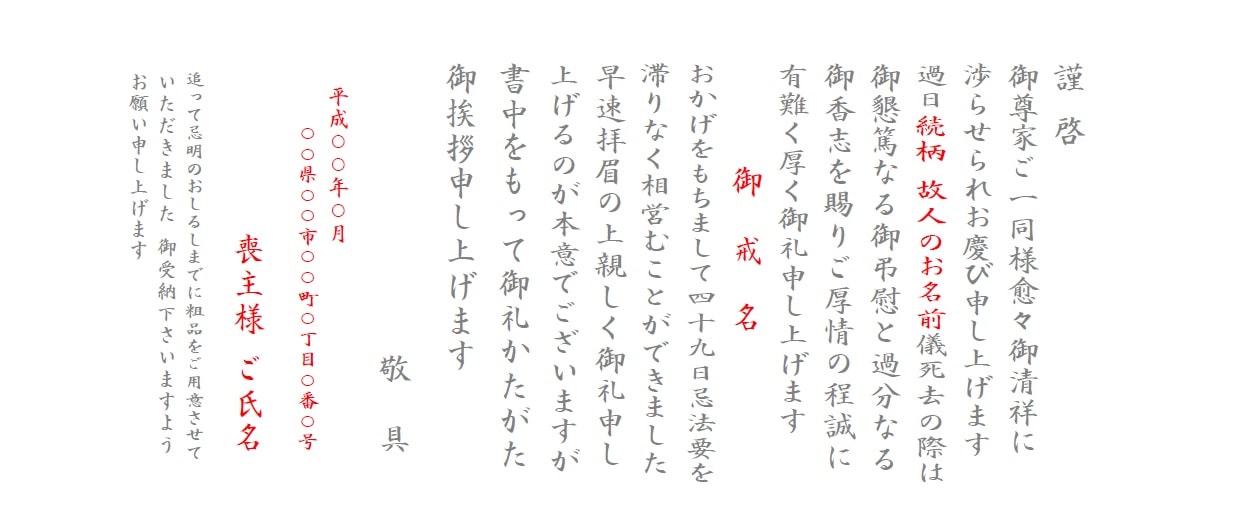 謹啓
御尊家ご一同様愈々御清祥に
渉らせられお慶び申し上げます
過日続柄 故人のお名前儀死去の際は
御懇篤なる御弔慰と過分なる
御香志を賜りご厚情の程誠に
有難く厚く御礼申し上げます
御戒名
おかげをもちまして四十九日忌法要を
滞りなく相営むことができました
早速拝眉の上親しく御礼申し
上げるのが本意でございますが
書中をもって御礼かたがた
御挨拶申し上げます
敬具
平成○○年○月
○○県○○市○○町○丁目○番○号
喪主様 ご氏名
追って忌明のおしるしまでに粗品をご用意させて
いただきました 御受納下さいますよう
お願い申し上げます